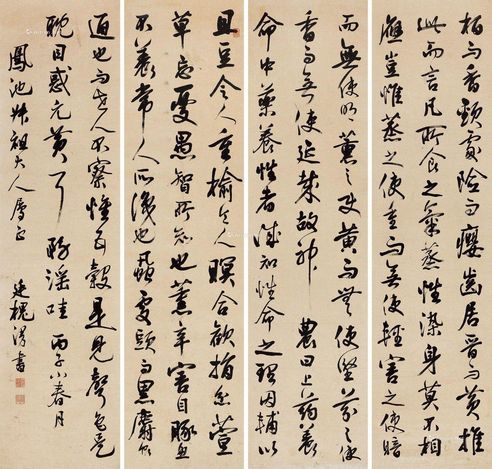 柏而香頸處險而癭齒居晉而黃推
此而言凡所食之氣蒸性染身莫不相
應豈惟蒸之使重而無使輕害之使暗
而無使明薰之使黃而無使堅芬之使
香而無使延哉故神農曰上藥養
命中藥養性者誠知性命之理因輔以
且豆令人重榆令人瞑合歡蠲忿萱
草忘憂愚智所知也薰辛害目豚魚
不養常人所識也蝨處頭而黑麝食
通也而世人不察惟五穀是見聲色是
耽目惑元黃耳務淫哇 丙子小春月
鳳池叔祖大人屬正 廷槐 書